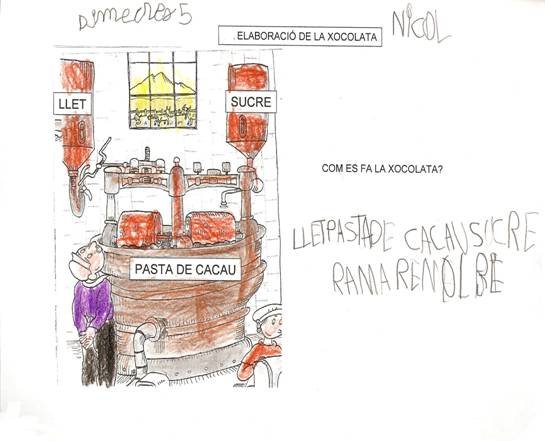 Dimecres 5
ELABORACIÓ DE LA XOCOLATA
NICOL
LLET
SUCRE
COM ES FA LA XOCOLATA?
PASTA DE CACAU
LLETPASTADE CACAUSUCRE
RAMARENOLBE